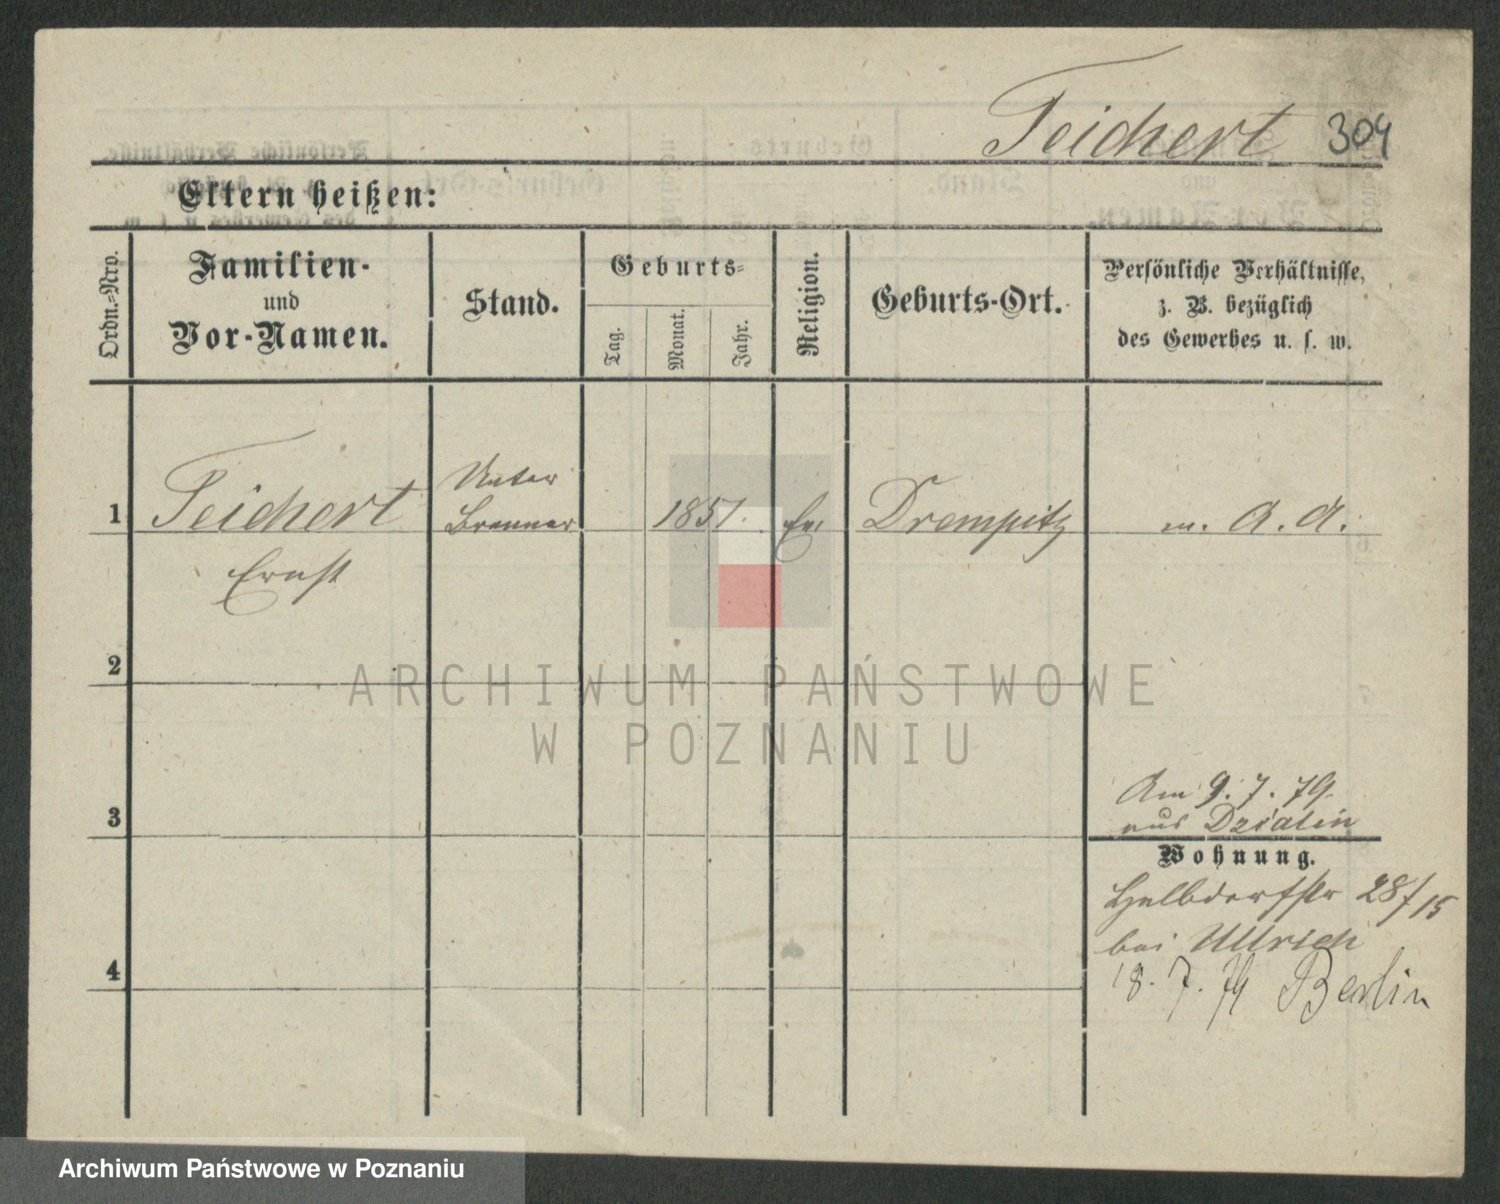 Teichert 304
Eltern heißen:
Ordn.-Nro.
Familien-
und
Vor-Namen.
Stand.
Geburts-
Tag.
Monat.
Jahr.
Religion.
Geburts-Ort.
Persönliche Verhältnisse,
z. B. bezüglich
des Gewerbes u. s. w.
1
Teichert
Ernst
Unter
Brenner
1851.
Ev.
Drempitz
m. A. A.
2
ARCHIWUM PAŃSTWOWE
W POZNANIU
3
Am 9. 7. 79.
aus Dzialin
Wohnung.
Halbdorfstr 28/15
bei Ullrich
4
18. 7. 79 Berlin
Archiwum Państwowe w Poznaniu